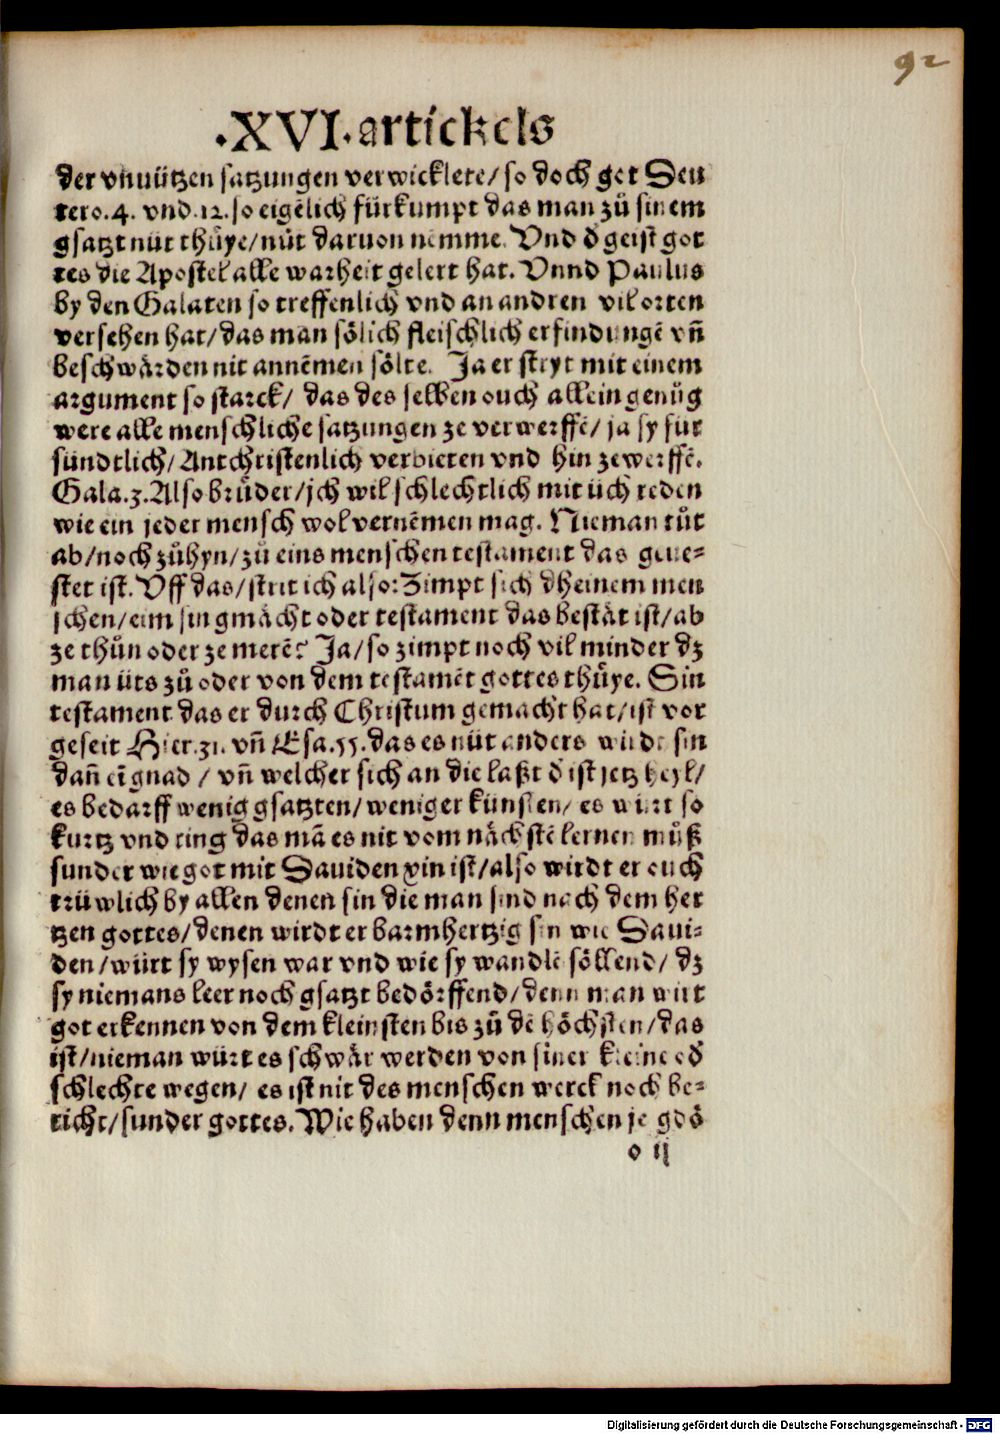 92
.XVI. artickels
der vnnützen satzungen verwicklete/ so doch got Deu
tero.4. vnd.12. so eigēlich fürkumpt das man zů sinem
gsatzt nüt thůye/ nüt daruon nemme. Vnd d̄ geist got
tes die Apostel alle warheit gelert hat. Vnnd Paulus
by den Galaten so treffenlich vnd an andren vil orten
versehen hat/ das man sölich fleischlich erfindungē vn̄
beschwärden nit annēmen sölte. Ja er stryt mit einem
argument so starck/ das des selben ouch allein genůg
were alle menschliche satzungen ze verwerffē/ ja sy für
sündtlich/ Antchristenlich verbieten vnd hin zewerffē.
Gala.3. Also brůder/ jch wil schlechtlich mit üch reden
wie ein jeder mensch wol vernēmen mag. Nieman tůt
ab/ noch zůhyn/ zů eins menschen testament das geue-
stet ist. Vff das/ strit ich also: Zimpt sich dheinem men
schen/ eim sin gmächt oder testament das bestät ist/ ab
ze thůn oder ze merē? Ja/ so zimpt noch vil minder dz
man üts zů oder von dem testamēt gottes thůye. Sin
testament das er durch Christum gemacht hat/ ist vor
geseit Hier.31. vn̄ Esa.55. das es nüt anders würde sin
dan̄ eī gnad/ vn̄ welcher sich an die laßt d̄ ist jetz heyl/
es bedarff wenig gsatzten/ weniger künsten/ es würt so
kurtz vnd ring das mā es nit vom nächstē lernen můß
sunder wie got mit Dauiden xin ist/ also wirdt er ouch
trüwlich by allen denen sin die man sind nach dem her
tzen gottes/ denen wirdt er barmhertzig sin wie Daui-
den/ würt sy wysen war vnd wie sy wandlē söllend/ dz
sy niemans leer noch gsatzt bedörffend/ denn man würt
got erkennen von dem kleinsten bis zů dē höchsten/ das
ist/ nieman würt es schwär werden von siner kleine od̄
schlechte wegen/ es ist nit des menschen werck noch be-
richt/ sunder gottes. Wie haben denn menschen je gdö
o ij
Digitalisierung gefördert durch die Deutsche Forschungsgemeinschaft - DFG